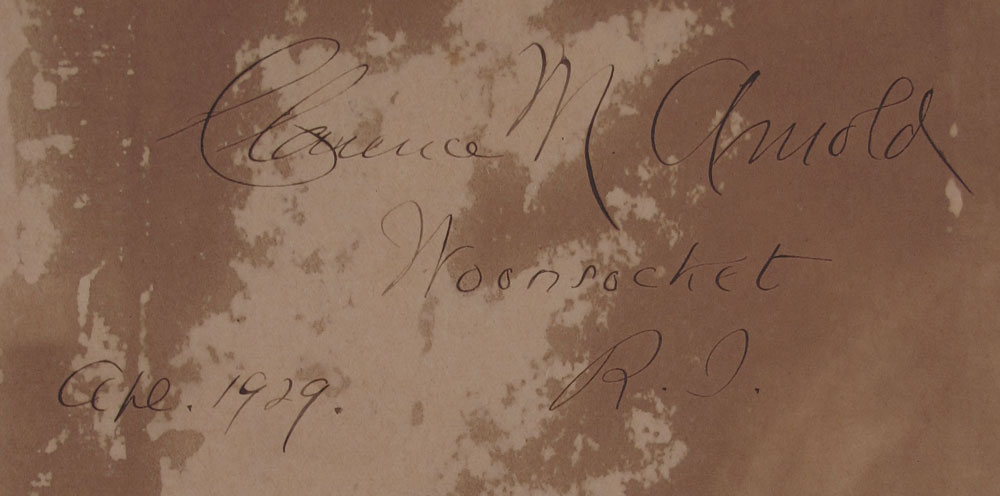 Clarence M. Arnold
Woonsocket
R. I.
Apl. 1929.